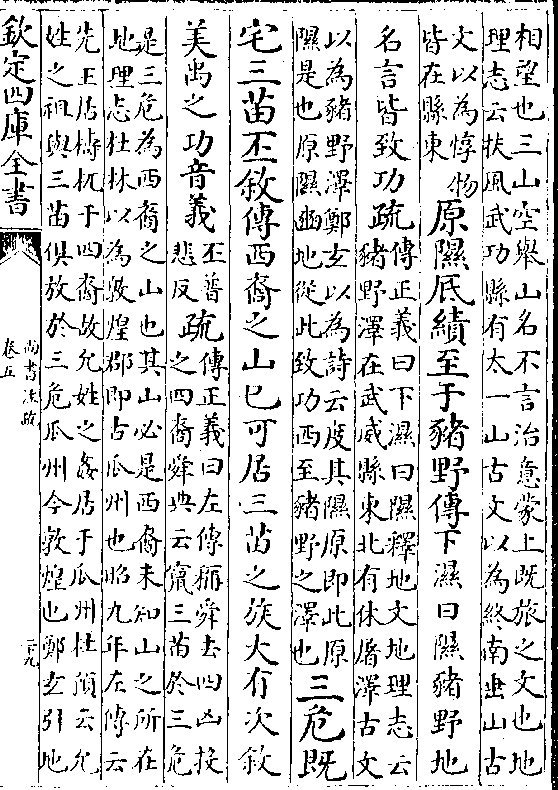 相望也三山空舉山名不言治意蒙上既旅之文也地
理志云扶風武功縣有太一山古文以為終南垂山古
文以為惇物
皆在縣東
原隰底績至于豬野傳下濕曰隰豬野地
名言皆致功疏
傳正義曰下濕曰隰釋地文地理志云
豬野澤在武威縣東北有休屠澤古文
以為豬野澤鄭玄以為詩云度其隰原即此原
隰是也原隰豳地從此致功西至豬野之澤也
三危既
宅三苗丕敘傳西裔之山已可居三苗之族大有次敘
美禹之功音義
丕普
悲反
疏
傳正義曰左傳稱舜去四凶投
之四裔舜典云竄三苗於三危
是三危為西裔之山也其山必是西裔未知山之所在
地理志杜林以為敦煌郡即古瓜州也昭九年左傳云
先王居檮杌于四裔故允姓之姦居于瓜州杜預云允
姓之祖與三苗俱放於三危瓜州今敦煌也鄭玄引地
欽定四庫全書
尚書注疏
卷五
二十九